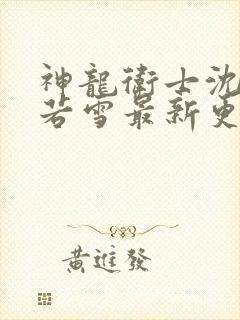 神龍衛士沈
若雪最新更
黃進發